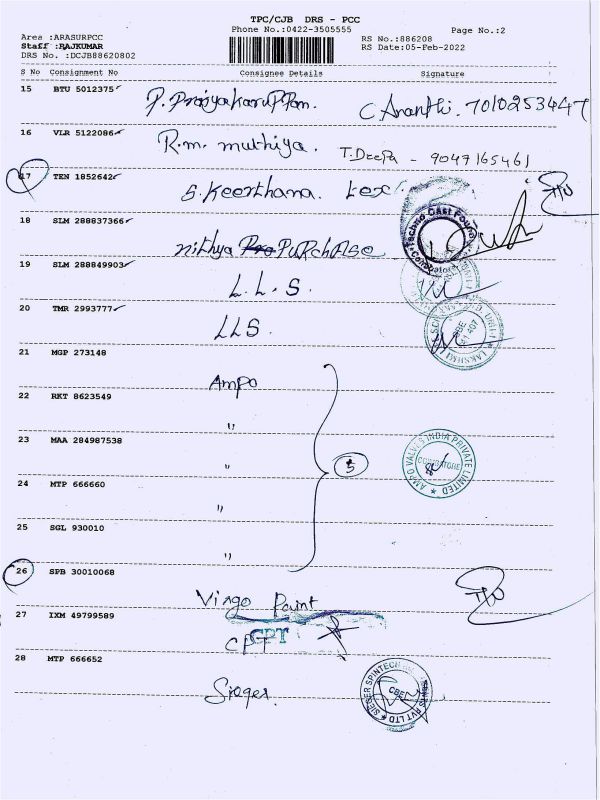 TPC/CJB DRS - PCC
Phone No.:0422-3505555
Page No.:2
Area :ARASURPCC
RS No.:886208
Staff :RAJKUMAR
RS Date:05-Feb-2022
DRS No. :DCJB88620802
S No Consignment No Consignee Details Signature
15 BTU 5012375
C Ananthi. 7010253447
16 VLR 5122086
R.m. muthiya. T.Deepa - 9047165461
17 TEN 1852642
S. Keerthana. Lex
18 SLM 288837366
Nithya Pro PURchase
19 SLM 288849903
L.L.S.
20 TMR 2993777
LLS.
21 MGP 273148
Ampo
22 RKT 8623549
"
23 MAA 284987538
" 5
AMPO VALVES INDIA PRIVATE LIMITED
COIMBATORE
24 MTP 666660
"
25 SGL 930010
"
26 SPB 30010068
Virgo Paint
27 IXM 49799589
CPT
CPT
28 MTP 666652
Sieger
SIEGER SPINTECH PVT LTD
CBE